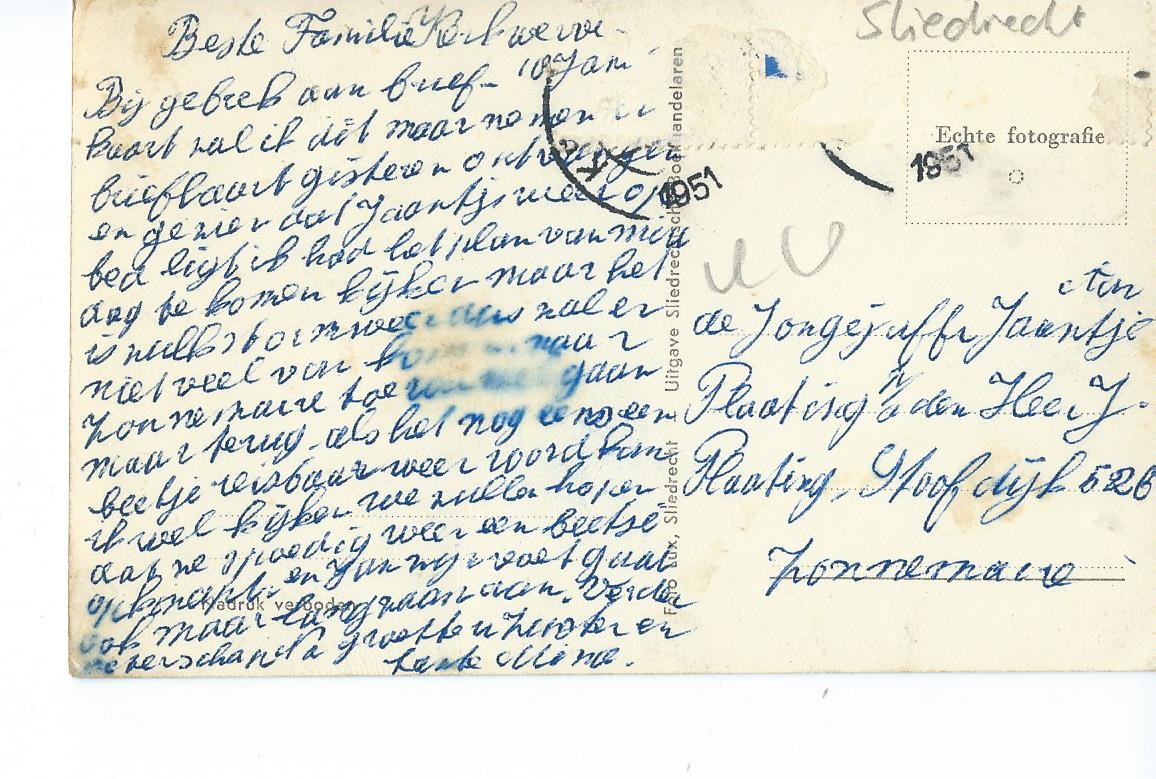 Sliedrecht
Beste Familie Kerkwerve
18 Jan
Bij gebrek aan brief-
kaart zal ik dit maar nemen
briefkaart gisteren ontvangen
en gezien dat Jaantje weer op
bed ligt ik had het plan van
dag te komen kijken maar het
is zulk stormweer dus zal er
niet veel van komen naar
Zonnemaire toe gaan
maar terug als het nog eens een
beetje reisbaar weer word kom
ik wel kijken we zullen hopen
dat ze spoedig weer een beetje
opknapt en Jan zijn voet gaat
ook maar langzaam aan. Verder
groeten Zuster en
tante Mina.
Nadruk verboden
Foto Lux, Sliedrecht - Uitgave Sliedrechtsche Boekhandelaren
1951
1951
Echte fotografie
Aan
de Jongejuffr Jaantje
Plaatsing den Heer J.
Plaatsing, Stoofdijk 526
Zonnemaire